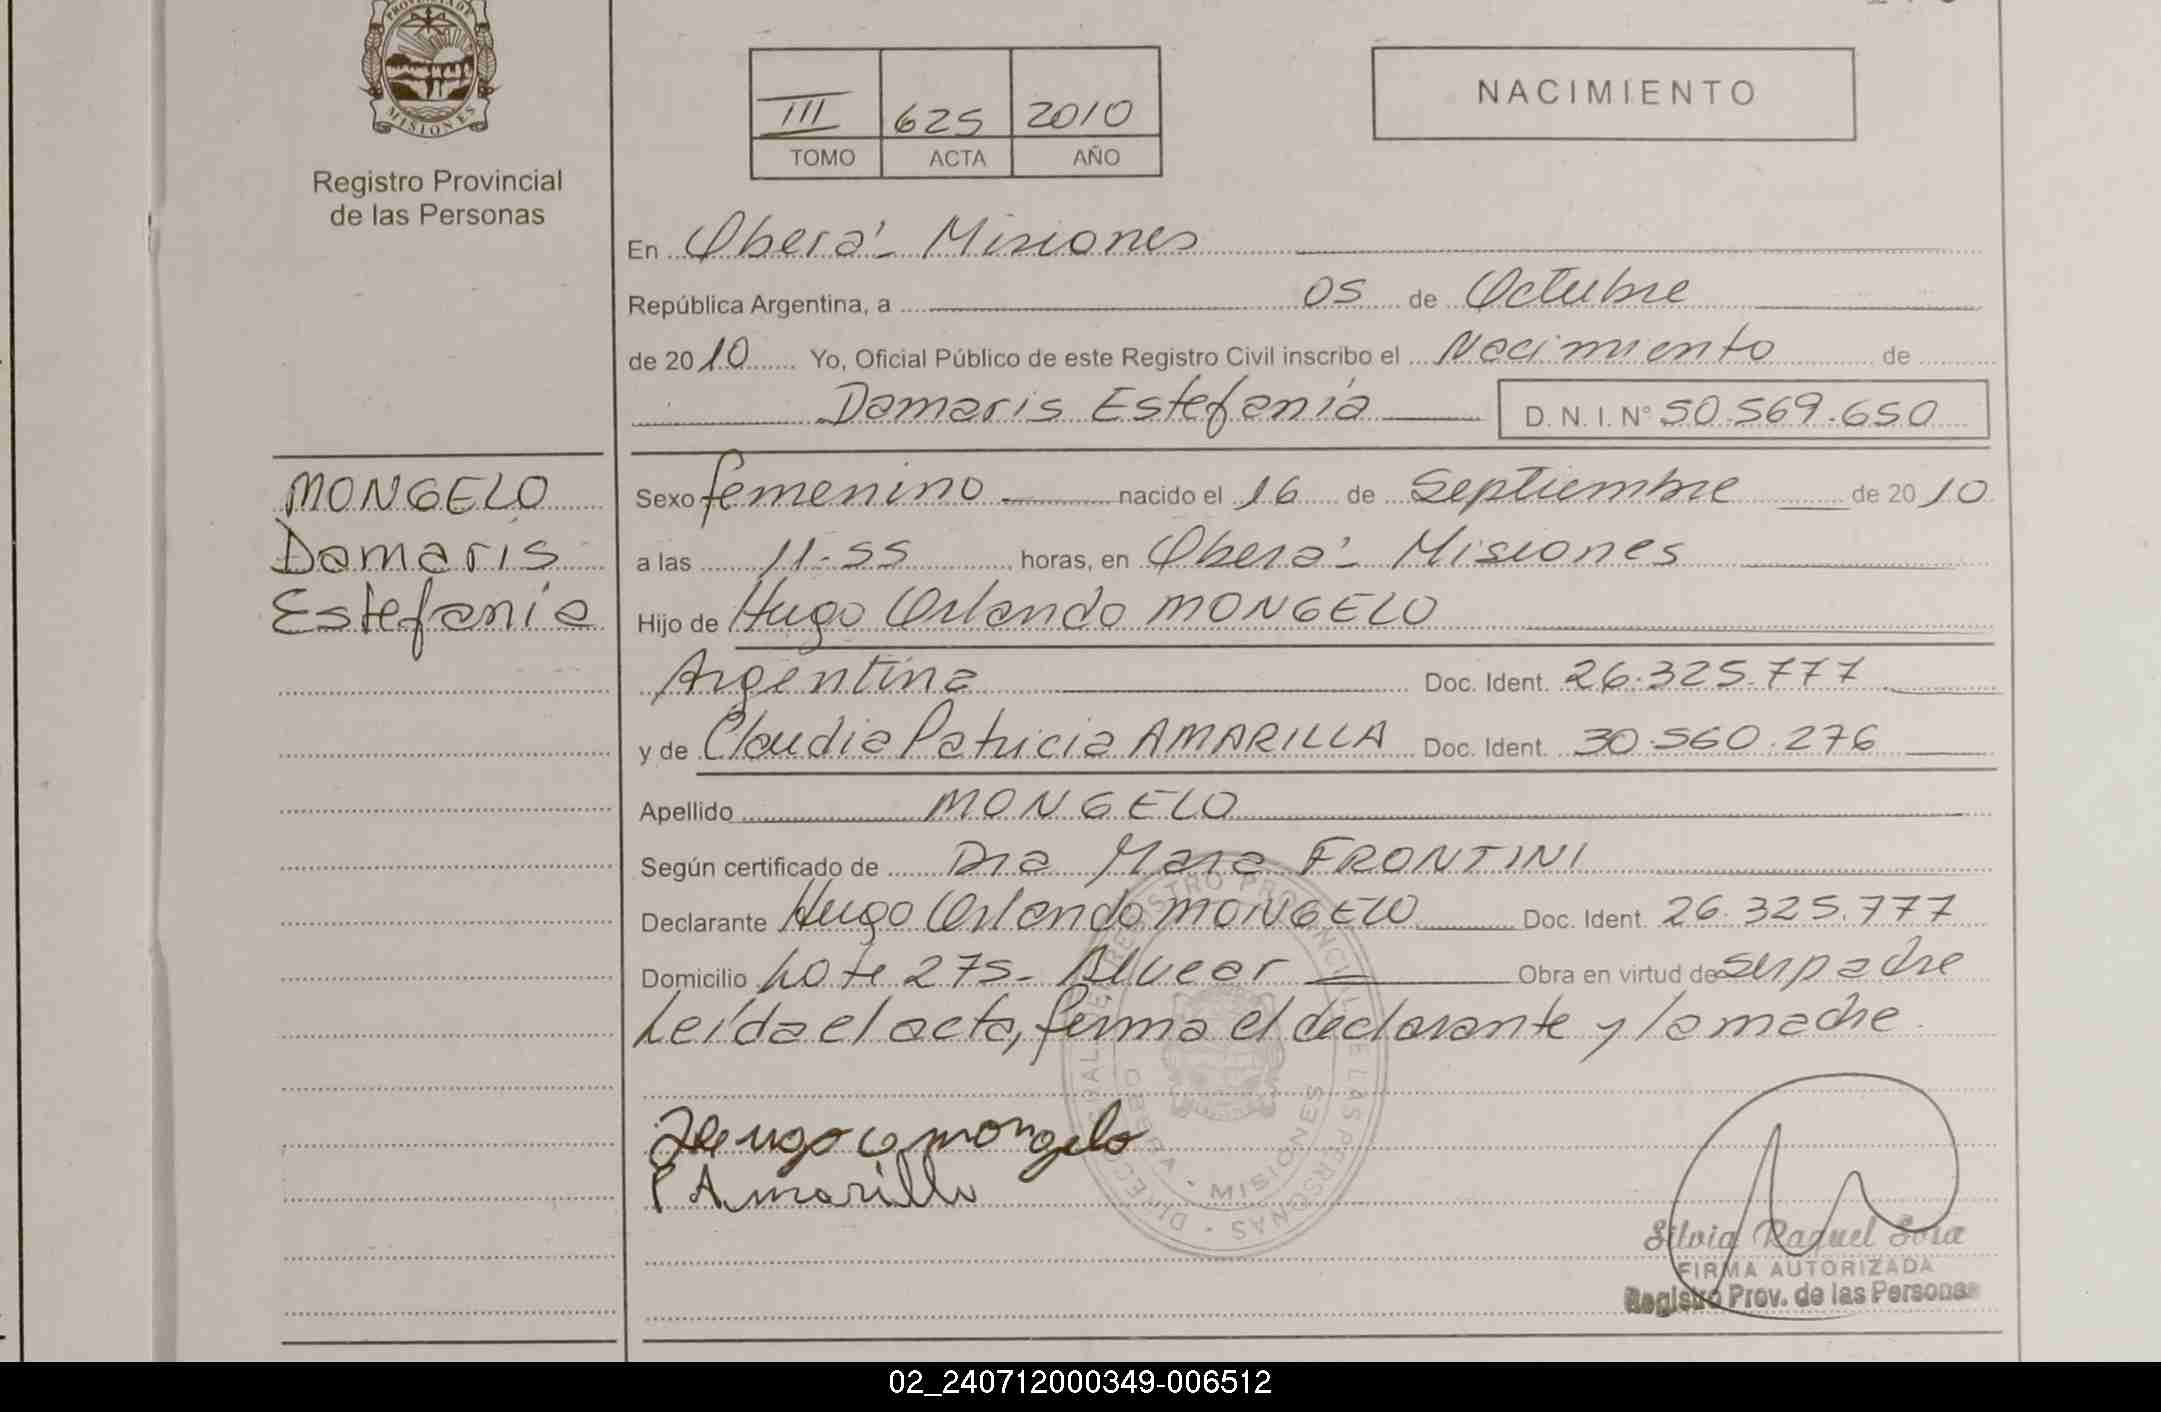 PROVINCIA DE
MISIONES
Registro Provincial
de las Personas
III 625 2010
TOMO ACTA AÑO
NACIMIENTO
En Oberá - Misiones
República Argentina, a 05 de Octubre
de 2010 Yo, Oficial Público de este Registro Civil inscribo el Nacimiento de
Damaris Estefanía D. N. I. N° 50.569.650
MONGELO
Damaris
Estefania
Sexo femenino nacido el 16 de Septiembre de 2010
a las 11-55 horas, en Oberá - Misiones
Hijo de Hugo Orlando MONGELO
Argentina Doc. Ident. 26.325.777
y de Claudia Patricia AMARILLA Doc. Ident. 30.560.276
Apellido MONGELO
Según certificado de Dra Mara FRONTINI
Declarante Hugo Orlando MONGELO Doc. Ident. 26.325.777
Domicilio Lote 275- Alvear Obra en virtud de ser padre
Leída el acta, firma el declarante y la madre.
Hugo O mongelo
P Amarilla
DIRECCION GENERAL DE REGISTRO PROVINCIAL DE LAS PERSONAS
OBERA - MISIONES
Silvia Raquel Sosa
FIRMA AUTORIZADA
Registro Prov. de las Personas
02_240712000349-006512